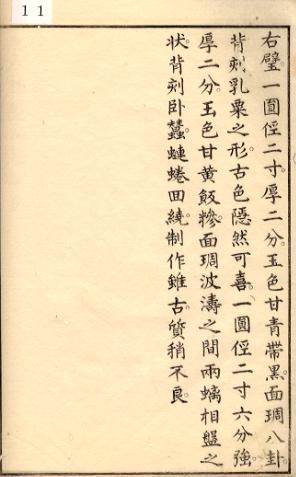 11
右璧一圓徑二寸厚二分玉色甘青帶黑面琱八卦
背刻乳粟之形古色隱然可喜一圓徑二寸六分強
厚二分玉色甘黄飯糝面琱波濤之間兩螭相盤之
状背刻卧蠶蜨蜷田繞制作雖古質稍不良